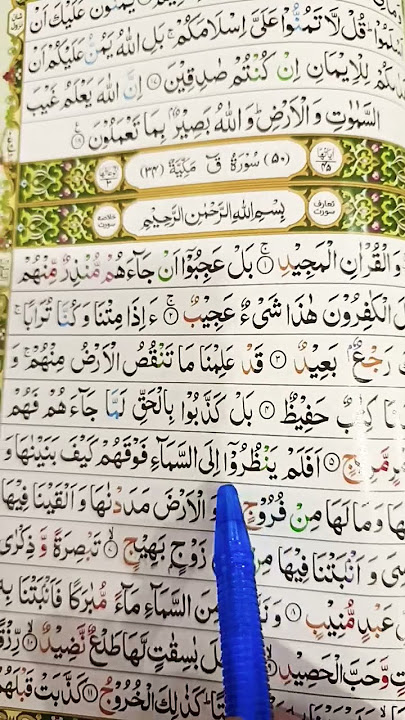 اَسْلَمُوْا ؕ قُلْ لَّا تَمُنُّوْا عَلَيَّ اِسْلَامَكُمْ ۚ بَلِ اللّٰهُ يَمُنُّ عَلَيْكُمْ اَنْ
لِلْاِيْمَانِ اِنْ كُنْتُمْ صٰدِقِيْنَ ﴿۱۷﴾ اِنَّ اللّٰهَ يَعْلَمُ غَيْبَ
السَّمٰوٰتِ وَالْاَرْضِ ؕ وَاللّٰهُ بَصِيْرٌۢ بِمَا تَعْمَلُوْنَ ﴿۱۸﴾
اٰيَاتُهَا ۴۵ (۵۰) سُوْرَةُ قٓ مَكِّيَّةٌ (۳۴) ۳
تعارف سورت بِسْمِ اللّٰهِ الرَّحْمٰنِ الرَّحِيْمِ خلاصہ سورت
وَالْقُرْاٰنِ الْمَجِيْدِ ﴿۱﴾ بَلْ عَجِبُوْۤا اَنْ جَآءَهُمْ مُّنْذِرٌ مِّنْهُمْ
الْكٰفِرُوْنَ هٰذَا شَيْءٌ عَجِيْبٌ ﴿۲﴾ ءَاِذَا مِتْنَا وَكُنَّا تُرَابًا ۚ
رَجْعٌۢ بَعِيْدٌ ﴿۳﴾ قَدْ عَلِمْنَا مَا تَنْقُصُ الْاَرْضُ مِنْهُمْ ۚ وَ
كِتٰبٌ حَفِيْظٌ ﴿۴﴾ بَلْ كَذَّبُوْا بِالْحَقِّ لَمَّا جَآءَهُمْ فَهُمْ
مَّرِيْجٍ ﴿۵﴾ اَفَلَمْ يَنْظُرُوْۤا اِلَى السَّمَآءِ فَوْقَهُمْ كَيْفَ بَنَيْنٰهَا وَ
وَمَا لَهَا مِنْ فُرُوْجٍ وَالْاَرْضَ مَدَدْنٰهَا وَاَلْقَيْنَا فِيْهَا
وَاَنْۢبَتْنَا فِيْهَا مِنْ زَوْجٍۭ بَهِيْجٍ ﴿۷﴾ تَبْصِرَةً وَّذِكْرٰى
عَبْدٍ مُّنِيْبٍ ﴿۸﴾ مِنَ السَّمَآءِ مَآءً مُّبٰرَكًا فَاَنْۢبَتْنَا بِهٖ
وَّحَبَّ الْحَصِيْدِ بٰسِقٰتٍ لَّهَا طَلْعٌ نَّضِيْدٌ ﴿۱۰﴾ رِّزْقًا
كَذٰلِكَ الْخُرُوْجُ ﴿۱۱﴾ كَذَّبَتْ قَبْلَهُمْ